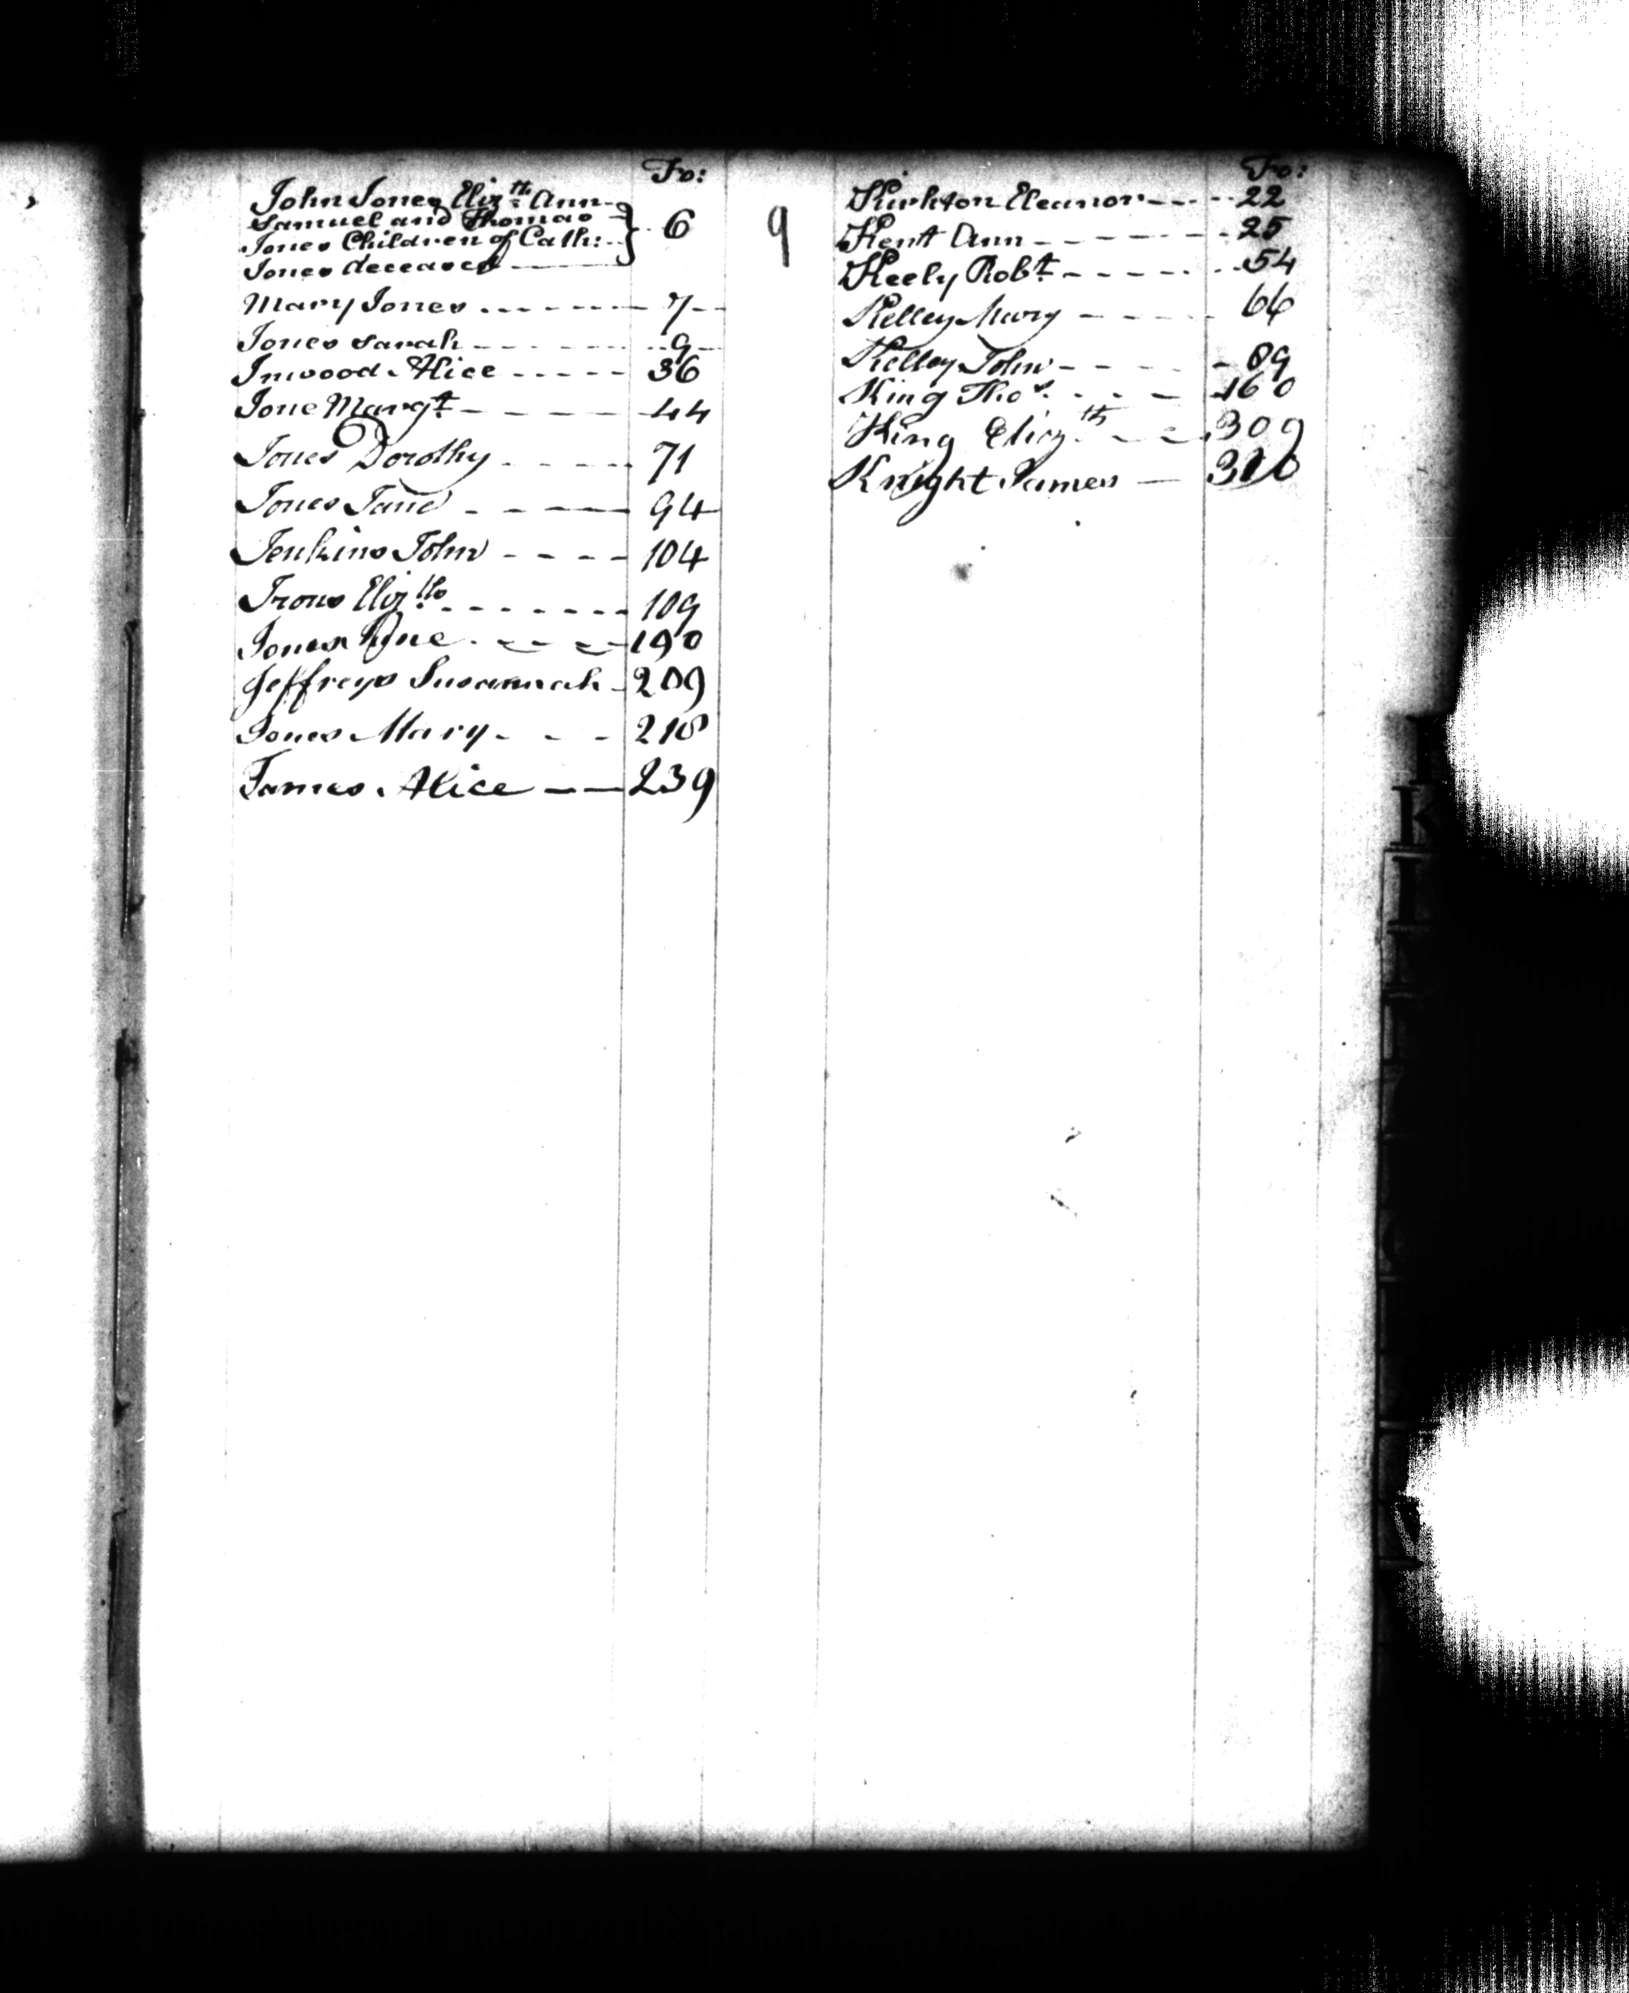 Fo:
John Jones Eliz.th Ann
Samuel and Thomas
Jones Children of Cath: } 6
Jones deceased
Mary Jones 7
Jones Sarah 9
Inwood Alice 36
Jone Marg.t 44
Jones Dorothy 71
Jones Jane 94
Jenkins John 104
Irons Eliz.th 109
Jones 190
Jeffreys Susannah 209
Jones Mary 218
James Alice 239
9
Fo:
Kirkton Eleanor 22
Kent Ann 25
Keely Rob.t 54
Kelley Mary 66
Kelley John 89
King Tho.s 160
King Eliz.th 309
Knight James
K